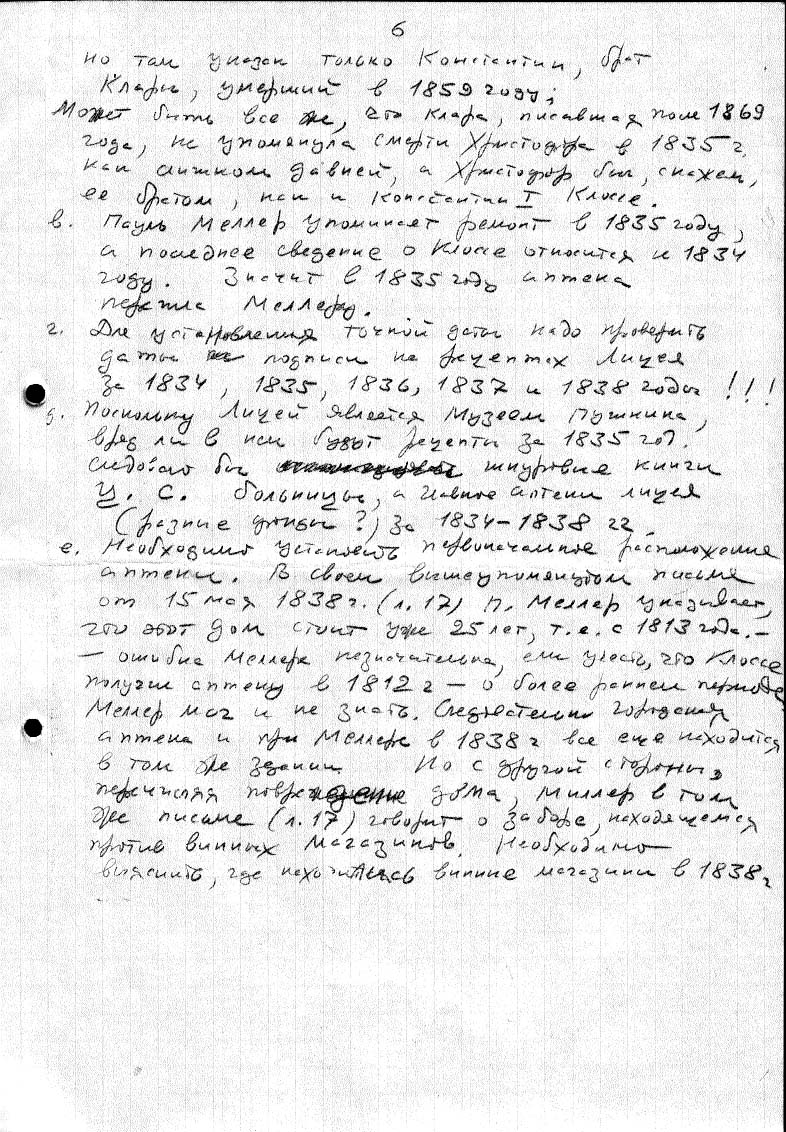 6
но там указан только Константин, брат
Клары, умерший в 1859 году;
Может быть все же, что Клара, писавшая после 1869
года, не упомянула смерти Христофора в 1835 г.
как слишком давней, а Христофор был, скажем,
ее братом, как и Константин I Клоссе.
в. Пауль Меллер упоминает ремонт в 1835 году,
а последнее сведение о Клоссе относится к 1834
году. Значит в 1835 году аптека
перешла Меллеру.
г. Для установления точной даты надо проверить
даты подписи на рецептах Лицея
за 1834, 1835, 1836, 1837 и 1838 годы !!!
д. Поскольку Лицей является Музеем Пушкина,
вряд ли в нем будут рецепты за 1835 год.
следовало бы шнуровые книги
Ц. С. больницы, а главное аптеки лицея
(разные фонды?) за 1834-1838 гг.
е. Необходимо установить первоначальное расположение
аптеки. В своем вышеупомянутом письме
от 15 мая 1838 г. (л. 17) П. Меллер указывает,
что этот дом стоит уже 25 лет, т.е. с 1813 года. –
– ошибка Меллера незначительна, если учесть, что Клоссе
получил аптеку в 1812 г – о более раннем периоде
Меллер мог и не знать. Следовательно городская
аптека и при Меллере в 1838 г все еще находится
в том же здании Но с другой стороны,
перечисляя повреждение дома, Миллер в том
же письме (л. 17) говорит о заборе, находящемся
против винных магазинов. Необходимо
выяснить, где находились винные магазины в 1838 г